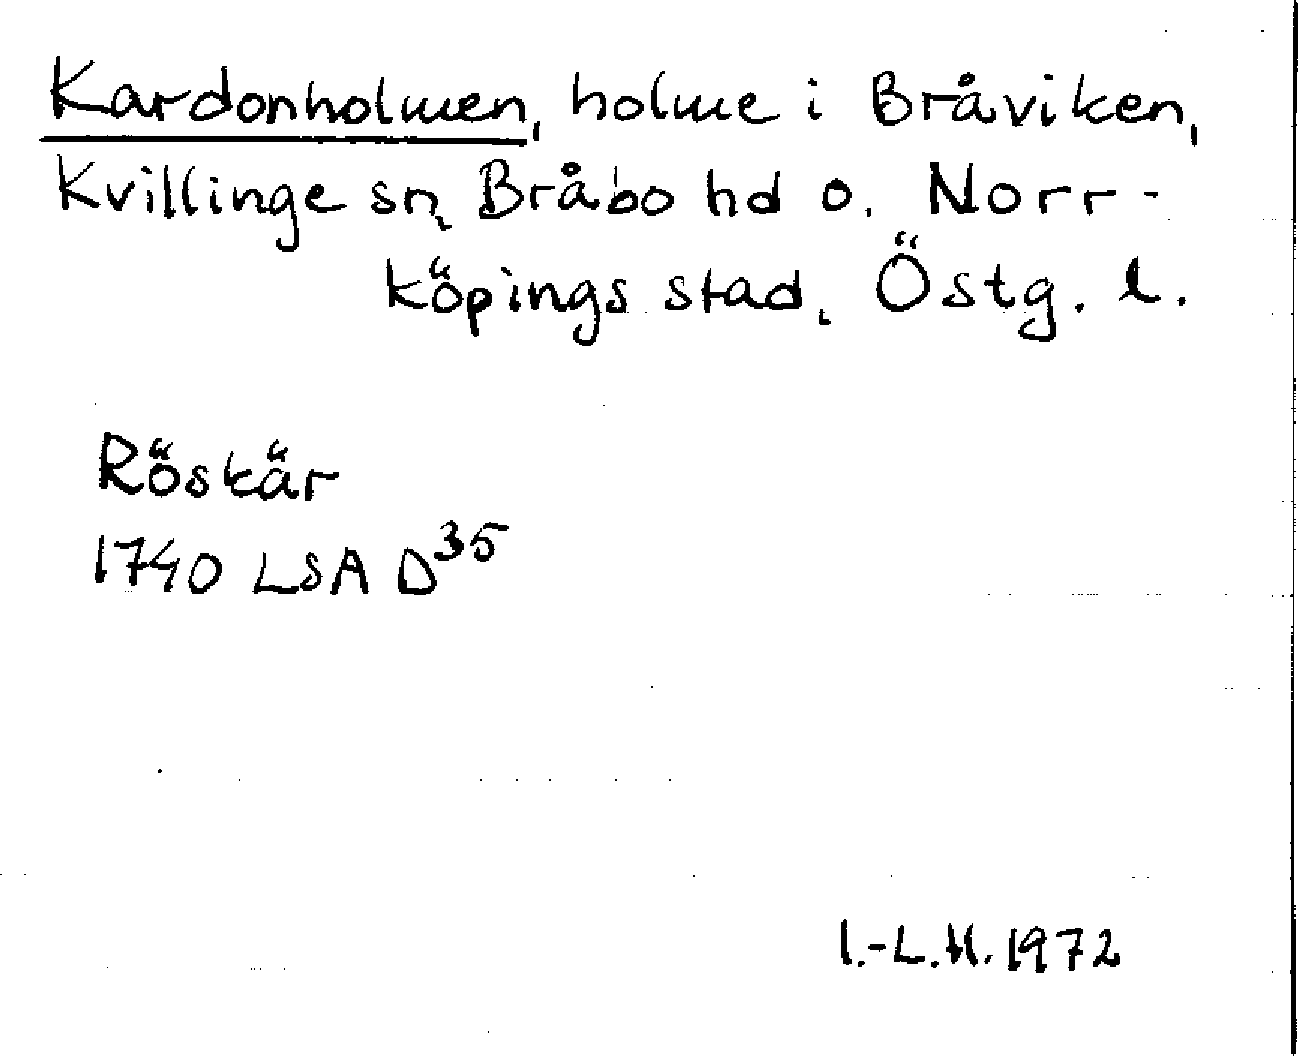 Kardonholmen, holme i Bråviken,
Kvillinge sn, Bråbo hd o. Norr-
köpings stad, Östg. l.
Röskär
1740 LSA D³⁵
I.-L.H. 1972